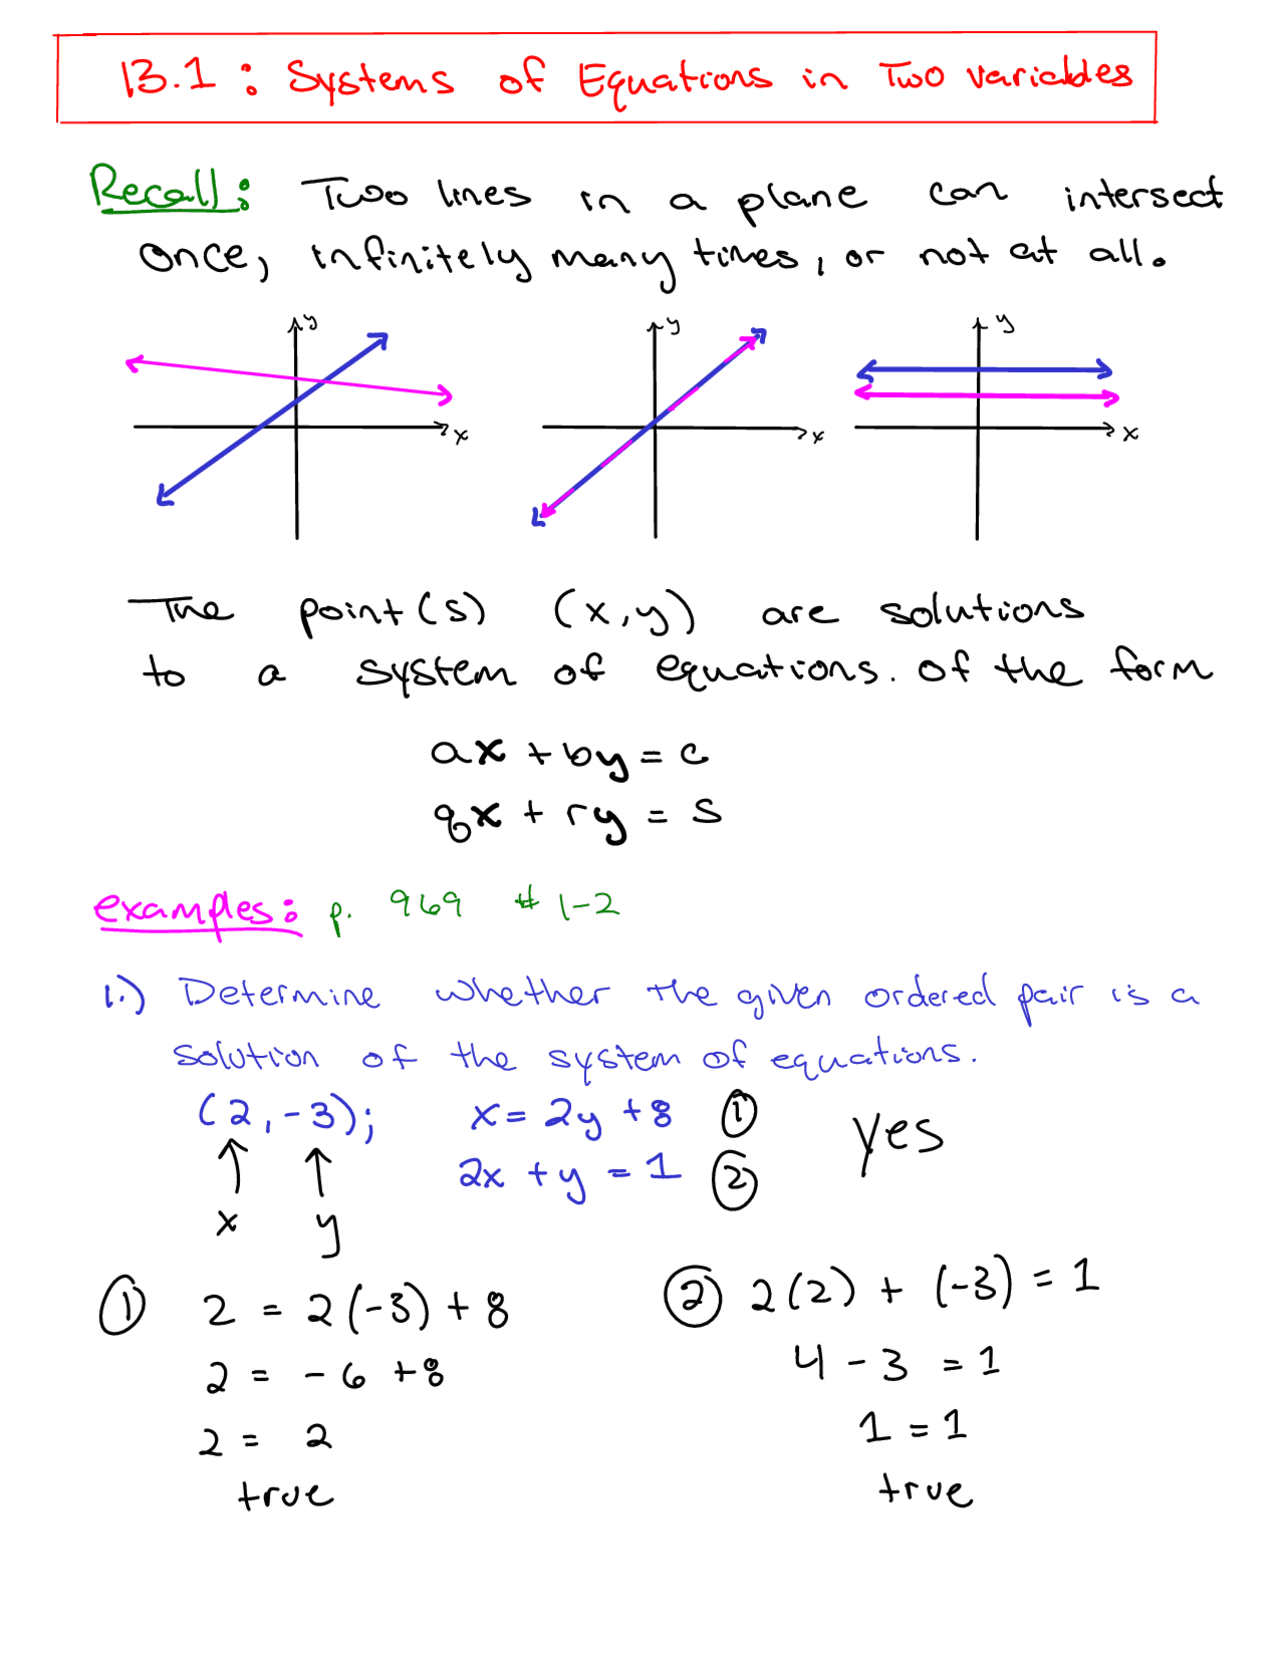 13.1 : Systems of Equations in Two variables
Recall: Two lines in a plane can intersect
once, infinitely many times, or not at all.
y y y
x x x
The point(s) (x,y) are solutions
to a system of equations. of the form
ax + by = c
qx + ry = s
examples: p. 969 # 1-2
1.) Determine whether the given ordered pair is a
solution of the system of equations.
(2,-3); x = 2y + 8 ① yes
2x + y = 1 ②
x y
① 2 = 2(-3) + 8 ② 2(2) + (-3) = 1
2 = -6 + 8 4 - 3 = 1
2 = 2 1 = 1
true true